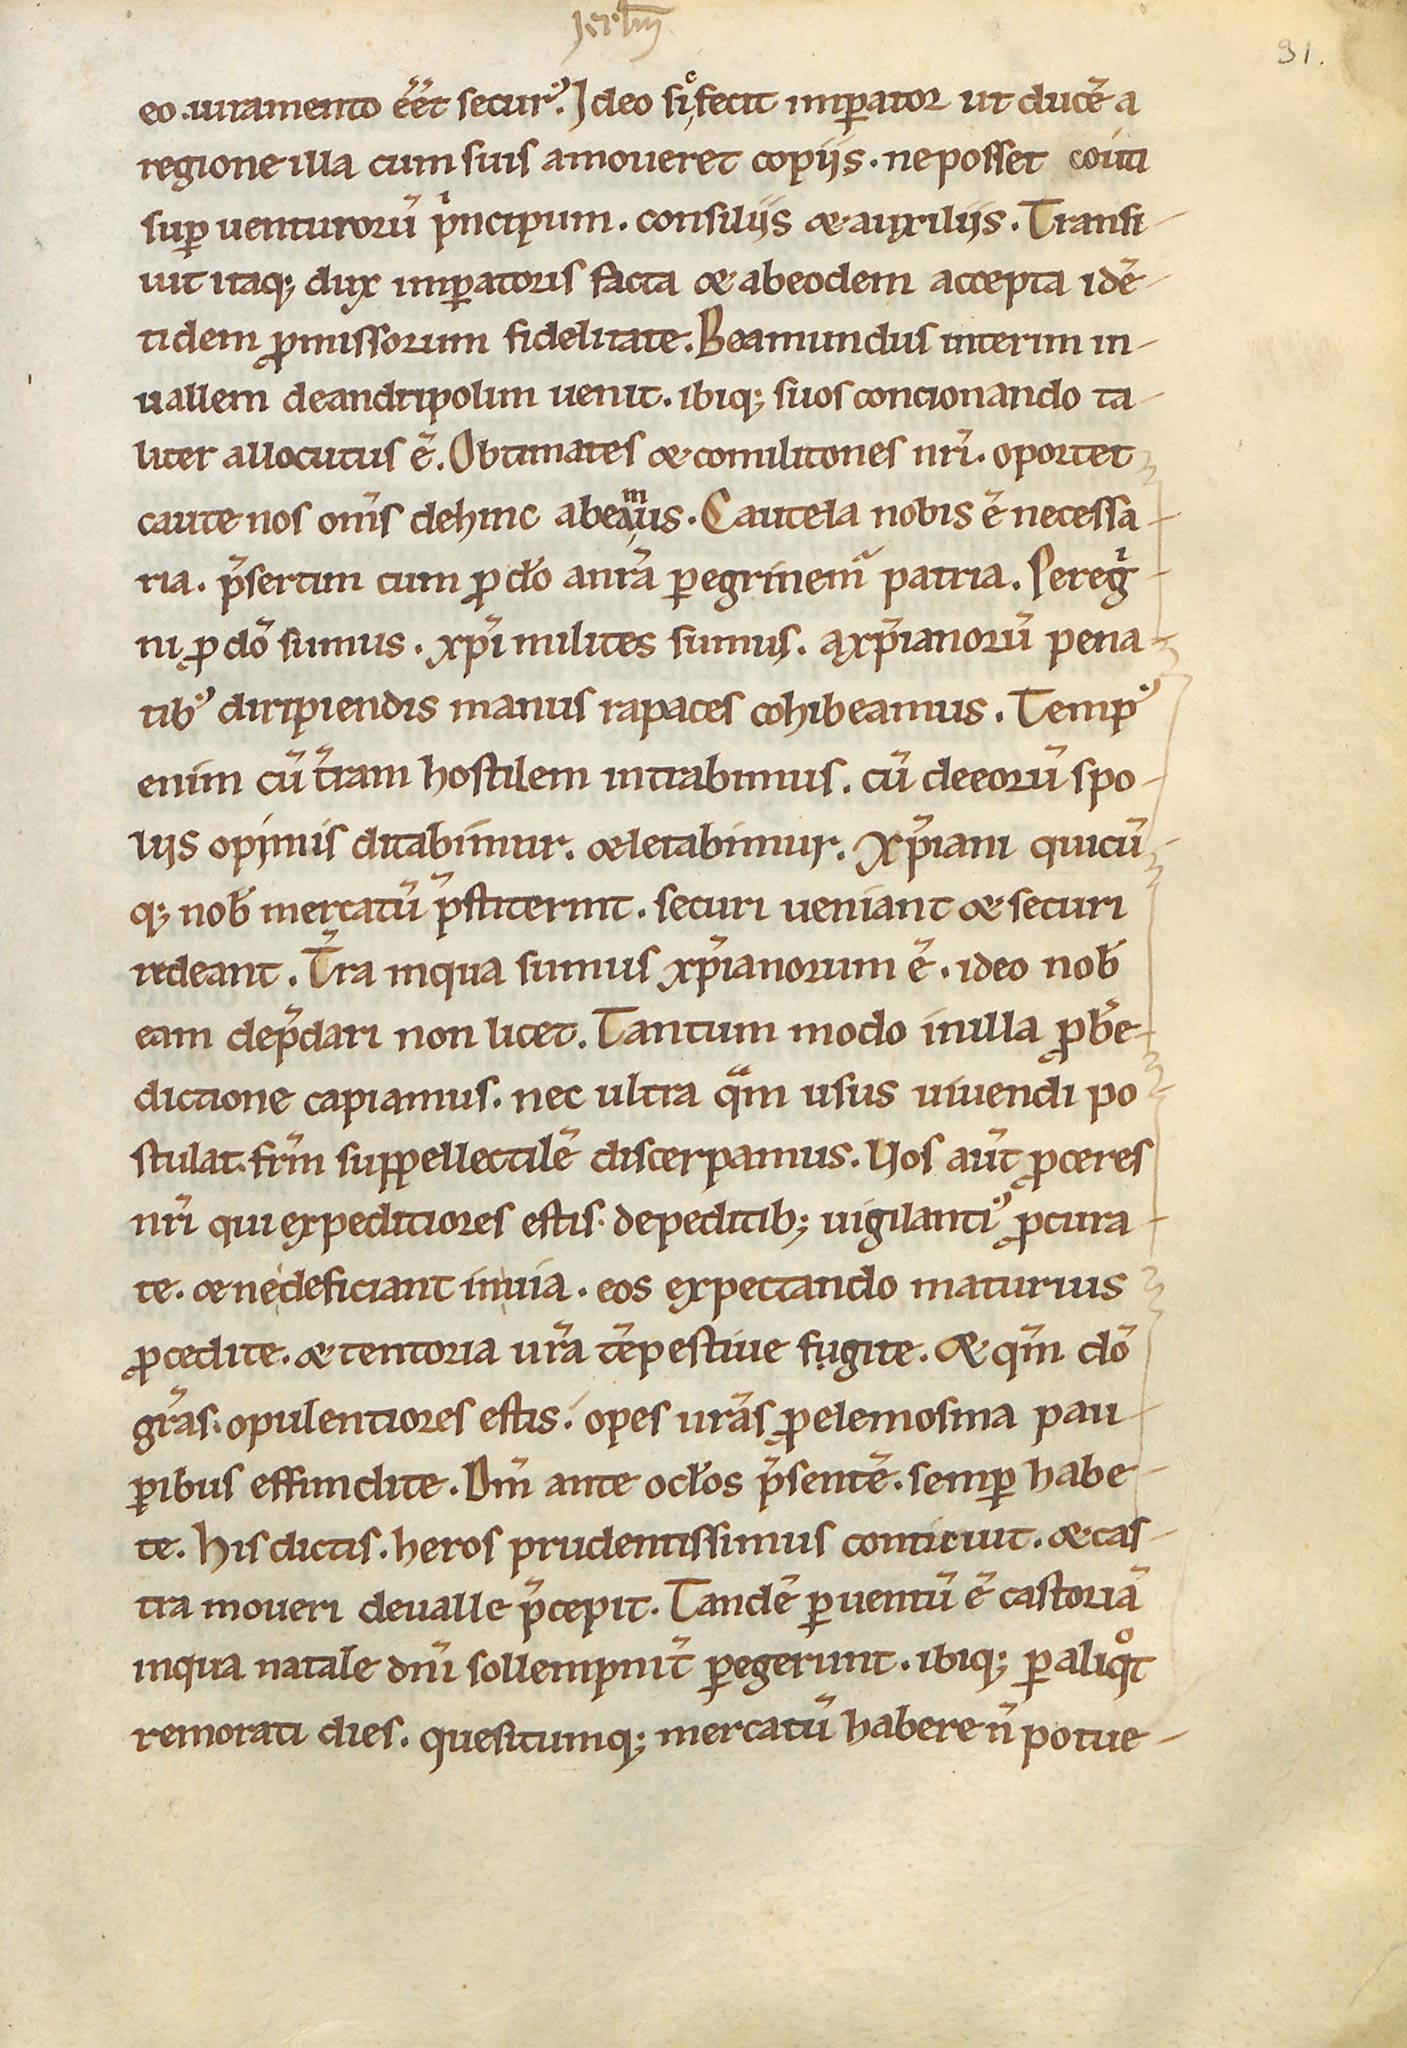 Jerl̅m̅
31.
eo. iuramento ee̅t secur᾽. Ideo sic fecit imꝑator ut duce̅ a
regione illa cum suis amoueret copiis. ne posset co̅iti
suꝑ uenturoru̅ pⁱncipum. consiliis & auxiliis. Transi-
uit itaq; dux imꝑatoris facta & ab eodem accepta ide̅-
tidem ꝓmissorum fidelitate. Boamundus interim in-
uallem de andripolim uenit. ibiq; suos concionando ta-
liter allocutus e̅. Obtimates & comilitones nr̅i. oportet
caute nos om̅s dehinc abeamus. Cautela nobis e̅ necessa-
ria. p̅sertim cum ꝓ do̅ a nr̅a ꝑegrinem᾽ patria. Peregⁱ-
ni ꝓ do̅ sumus. xp̅i milites sumus. a xp̅ianoru̅ pena-
tib᾽ diripiendis manus rapaces cohibeamus. Temp᾽
enim cu̅ t̅ram hostilem intrabimus. cu̅ de eoru̅ spo-
liis opimis ditabimur. & letabimur. Xp̅iani quicu̅-
q; nob̅ mercatu̅ p̅stiterint. securi ueniant & securi
redeant. T̅ra in qua sumus xp̅ianorum e̅. ideo nob̅
eam dep̅dari non licet. Tantum modo in illa ꝓ be̅-
dictione capiamus. nec ultra qᵃm usus uiuendi po-
stulat. fr̅m suppellectile̅ discerpamus. Uos aut̅ ꝓceres
nr̅i qui expeditiores estis. de peditib; uigilanti᾽ ꝓcura-
te. & ne deficiant in uia. eos expectando maturius
ꝓcedite. & tentoria ur̅a te̅pestiue fugite. & qm̅ do̅
gr̅as. opulentiores estis. opes ur̅as ꝓ elemosina pau-
ꝑibus effundite. Dm̅ ante oc̅los p̅sente̅. semꝑ habe-
te. His dictis. heros prudentissimus conticuit. & cas-
tra moueri de ualle p̅cepit. Tande̅ ꝑuentu̅ e̅ castoria̅
in qua natale dn̅i sollempnit̅ ꝑegerunt. ibiq; ꝑ aliqᵒt
remorati dies. quesitumq; mercatu̅ habere n̅ potue-